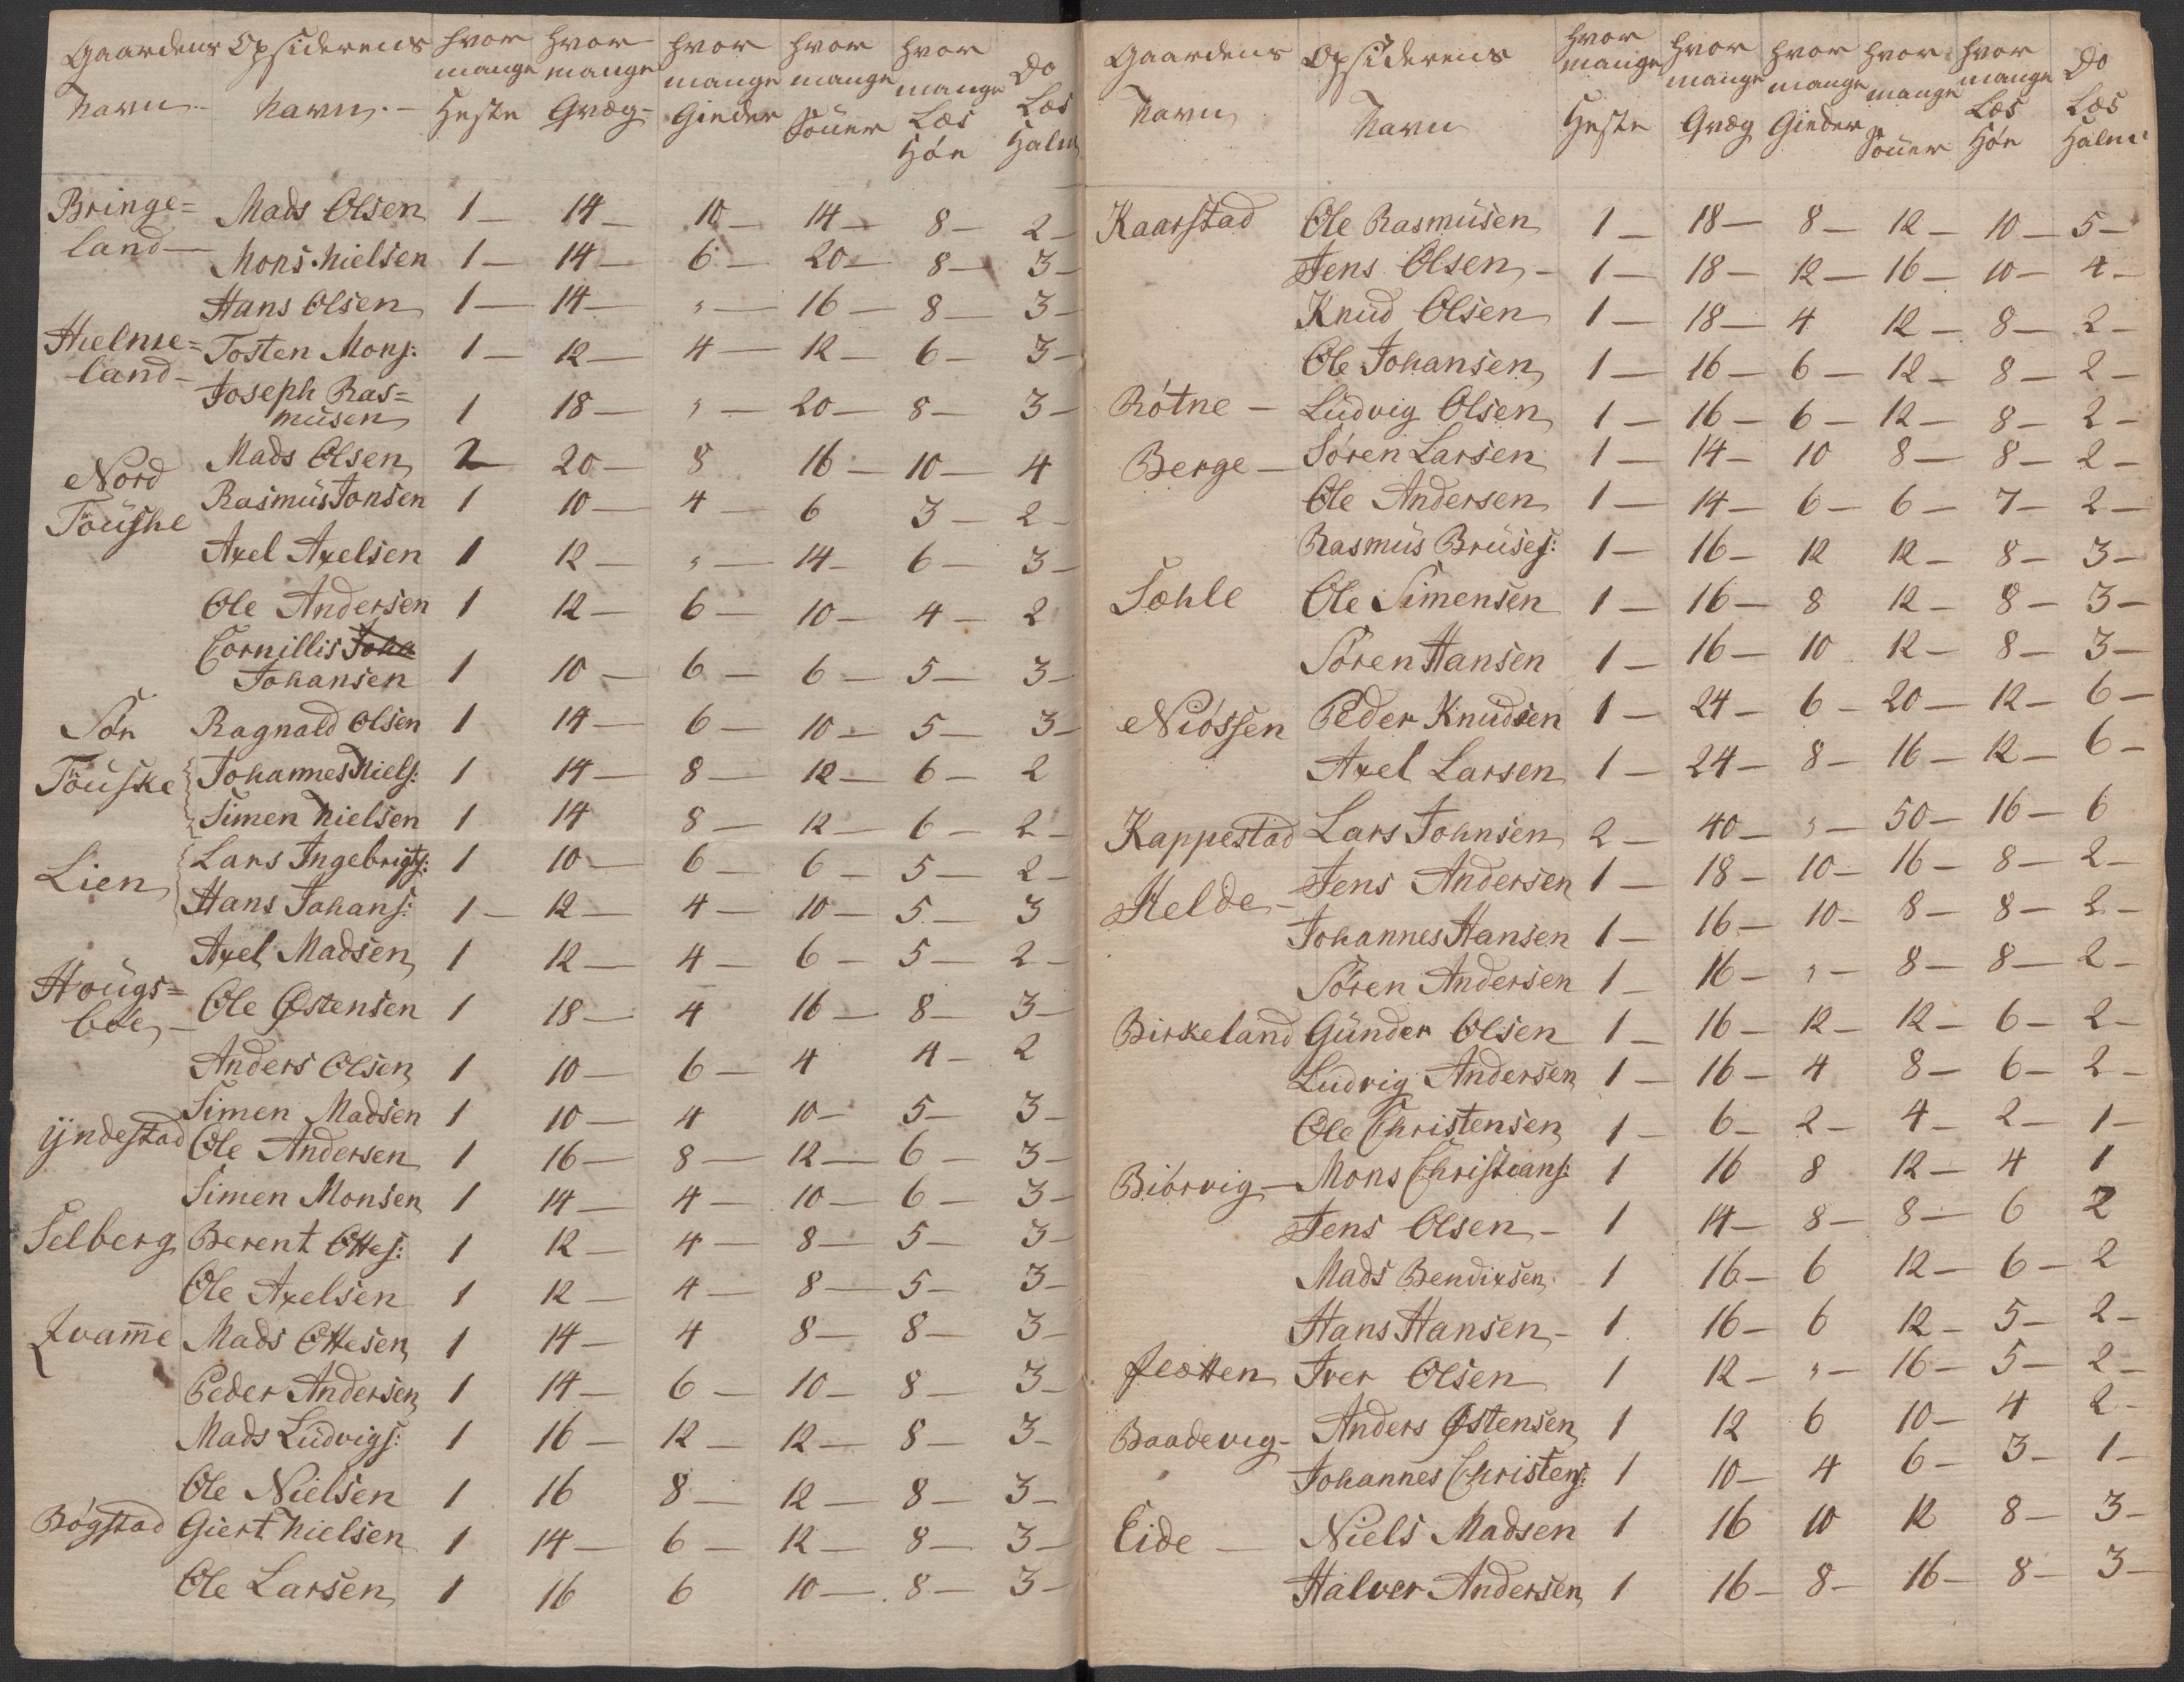 Gaardens Opsiderens hvor hvor hvor hvor hvor Do
mange mange mange mange mange Læs
Navn Navn. Heste Qvæg Gieder Söuer Læs Halm
Höe
Bringe= Mads Olsen 1 14 10 14 8 2
land Mons Nielsen 1 14 6 20 8 3
Hans Olsen 1 14 " 16 8 3
Hielme= Tosten Mons: 1 12 4 12 6 3
land Joseph Ras=
musen 1 18 " 20 8 3
Nord Mads Olsen 2 20 8 16 10 4
Töuske Rasmus Jonsen 1 10 4 6 3 2
Axel Axelsen 1 12 " 14 6 3
Ole Andersen 1 12 6 10 4 2
Cornillis Joha
Johansen 1 10 6 6 5 3
Sör Ragnald Olsen 1 14 6 10 5 3
Töuske Johannes Niels: 1 14 8 12 6 2
Simen Nielsen 1 14 8 12 6 2
Lien Lars Ingebrigts: 1 10 6 6 5 2
Hans Johans: 1 12 4 10 5 3
Axel Madsen 1 12 4 6 5 2
Hougs= Ole Østensen 1 18 4 16 8 3
böe Anders Olsen 1 10 6 4 4 2
Simen Madsen 1 10 4 10 5 3
ÿndestad Ole Andersen 1 16 8 12 6 3
Simen Monsen 1 14 4 10 6 3
Selberg Berent Ottes: 1 12 4 8 5 3
Ole Axelsen 1 12 4 8 5 3
Qvam̅e Mads Ottesen 1 14 4 8 8 3
Peder Andersen 1 14 6 10 8 3
Mads Ludvigs: 1 16 12 12 8 3
Ole Nielsen 1 16 8 12 8 3
Bögstad Giert Nielsen 1 14 6 12 8 3
Ole Larsen 1 16 6 10 8 3
Gaardens Opsiderens hvor hvor hvor hvor hvor Do
mange mange mange mange mange Læs
Navn Navn Heste Qvæg Gieder Söuer Læs Halm
Höe
Kaarstad Ole Rasmusen 1 18 8 12 10 5
Jens Olsen 1 18 12 16 10 4
Knud Olsen 1 18 4 12 8 2
Ole Johansen 1 16 6 12 8 2
Rötne Ludvig Olsen 1 16 6 12 8 2
Berge Sören Larsen 1 14 10 8 8 2
Ole Andersen 1 14 6 6 7 2
Rasmus Bruses: 1 16 12 12 8 3
Sæhle Ole Simensen 1 16 8 12 8 3
Sören Hansen 1 16 10 12 8 3
Niössen Peder Knudsen 1 24 6 20 12 6
Axel Larsen 1 24 8 16 12 6
Kappestad Lars Johnsen 2 40 " 50 16 6
Kelde Jens Andersen 1 18 10 16 8 2
Johannes Hansen 1 16 10 8 8 2
Sören Andersen 1 16 " 8 8 2
Birkeland Gunder Olsen 1 16 12 12 6 2
Ludvig Andersen 1 16 4 8 6 2
Ole Christensen 1 6 2 4 2 1
Biörvig Mons Christians: 1 16 8 12 4 1
Jens Olsen 1 14 8 8 6 2
Mads Bendixsen 1 16 6 12 6 2
Hans Hansen 1 16 6 12 5 2
fletten Iver Olsen 1 12 " 16 5 2
Baadevig Anders Østensen 1 12 6 10 4 2
Johannes Christens: 1 10 4 6 3 1
Eide Niels Madsen 1 16 10 12 8 3
Halver Andersen 1 16 8 16 8 3